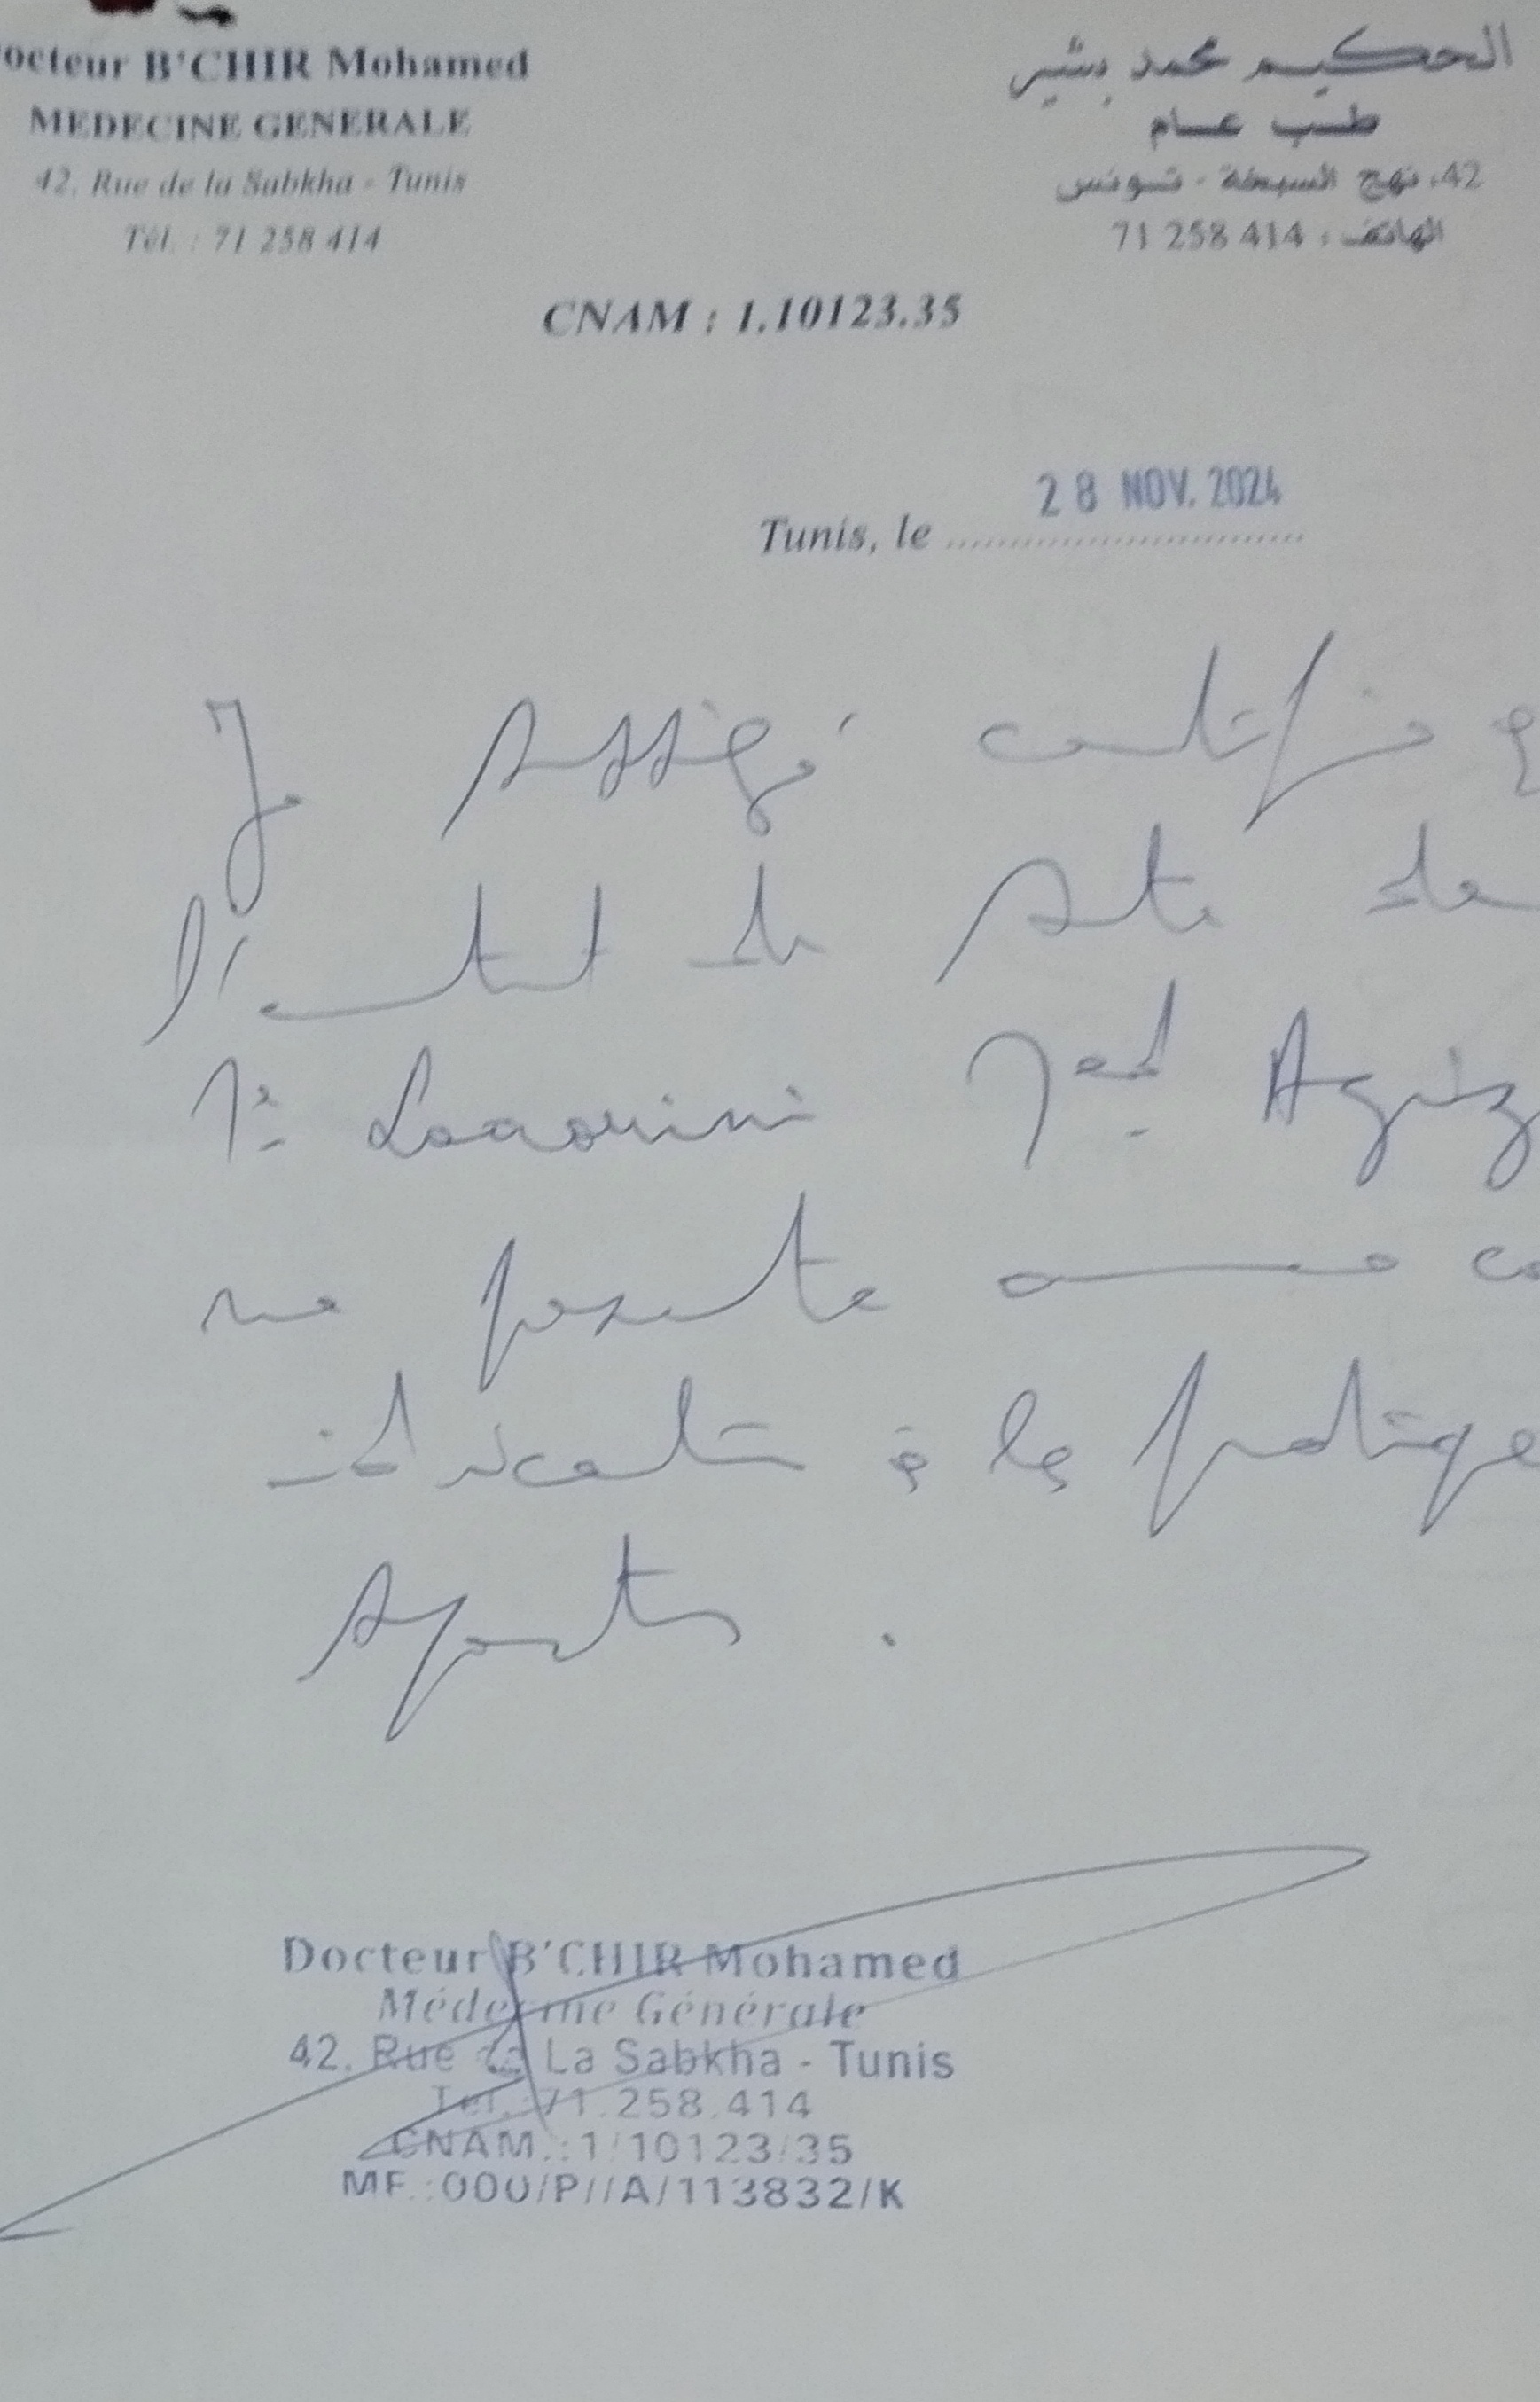 octeur B'CHIR Mohamed
MEDECINE GENERALE
42, Rue de la Sabkha - Tunis
Tél. : 71 258 414
الحكيم محمد بشير
طب عام
42، نهج السبخة - تونس
الهاتف : 71 258 414
CNAM : 1.10123.35
Tunis, le ........................... 28 NOV. 2024
Je sussigé certifie q
l'etat de sate de
Laaouini Med Aziz
ne presente aucune co
indication à la pratique
sports .
Docteur B'CHIR Mohamed
Médecine Générale
42, Rue de La Sabkha - Tunis
Tel.:71.258.414
CNAM.:1/10123/35
MF.:000/P//A/113832/K